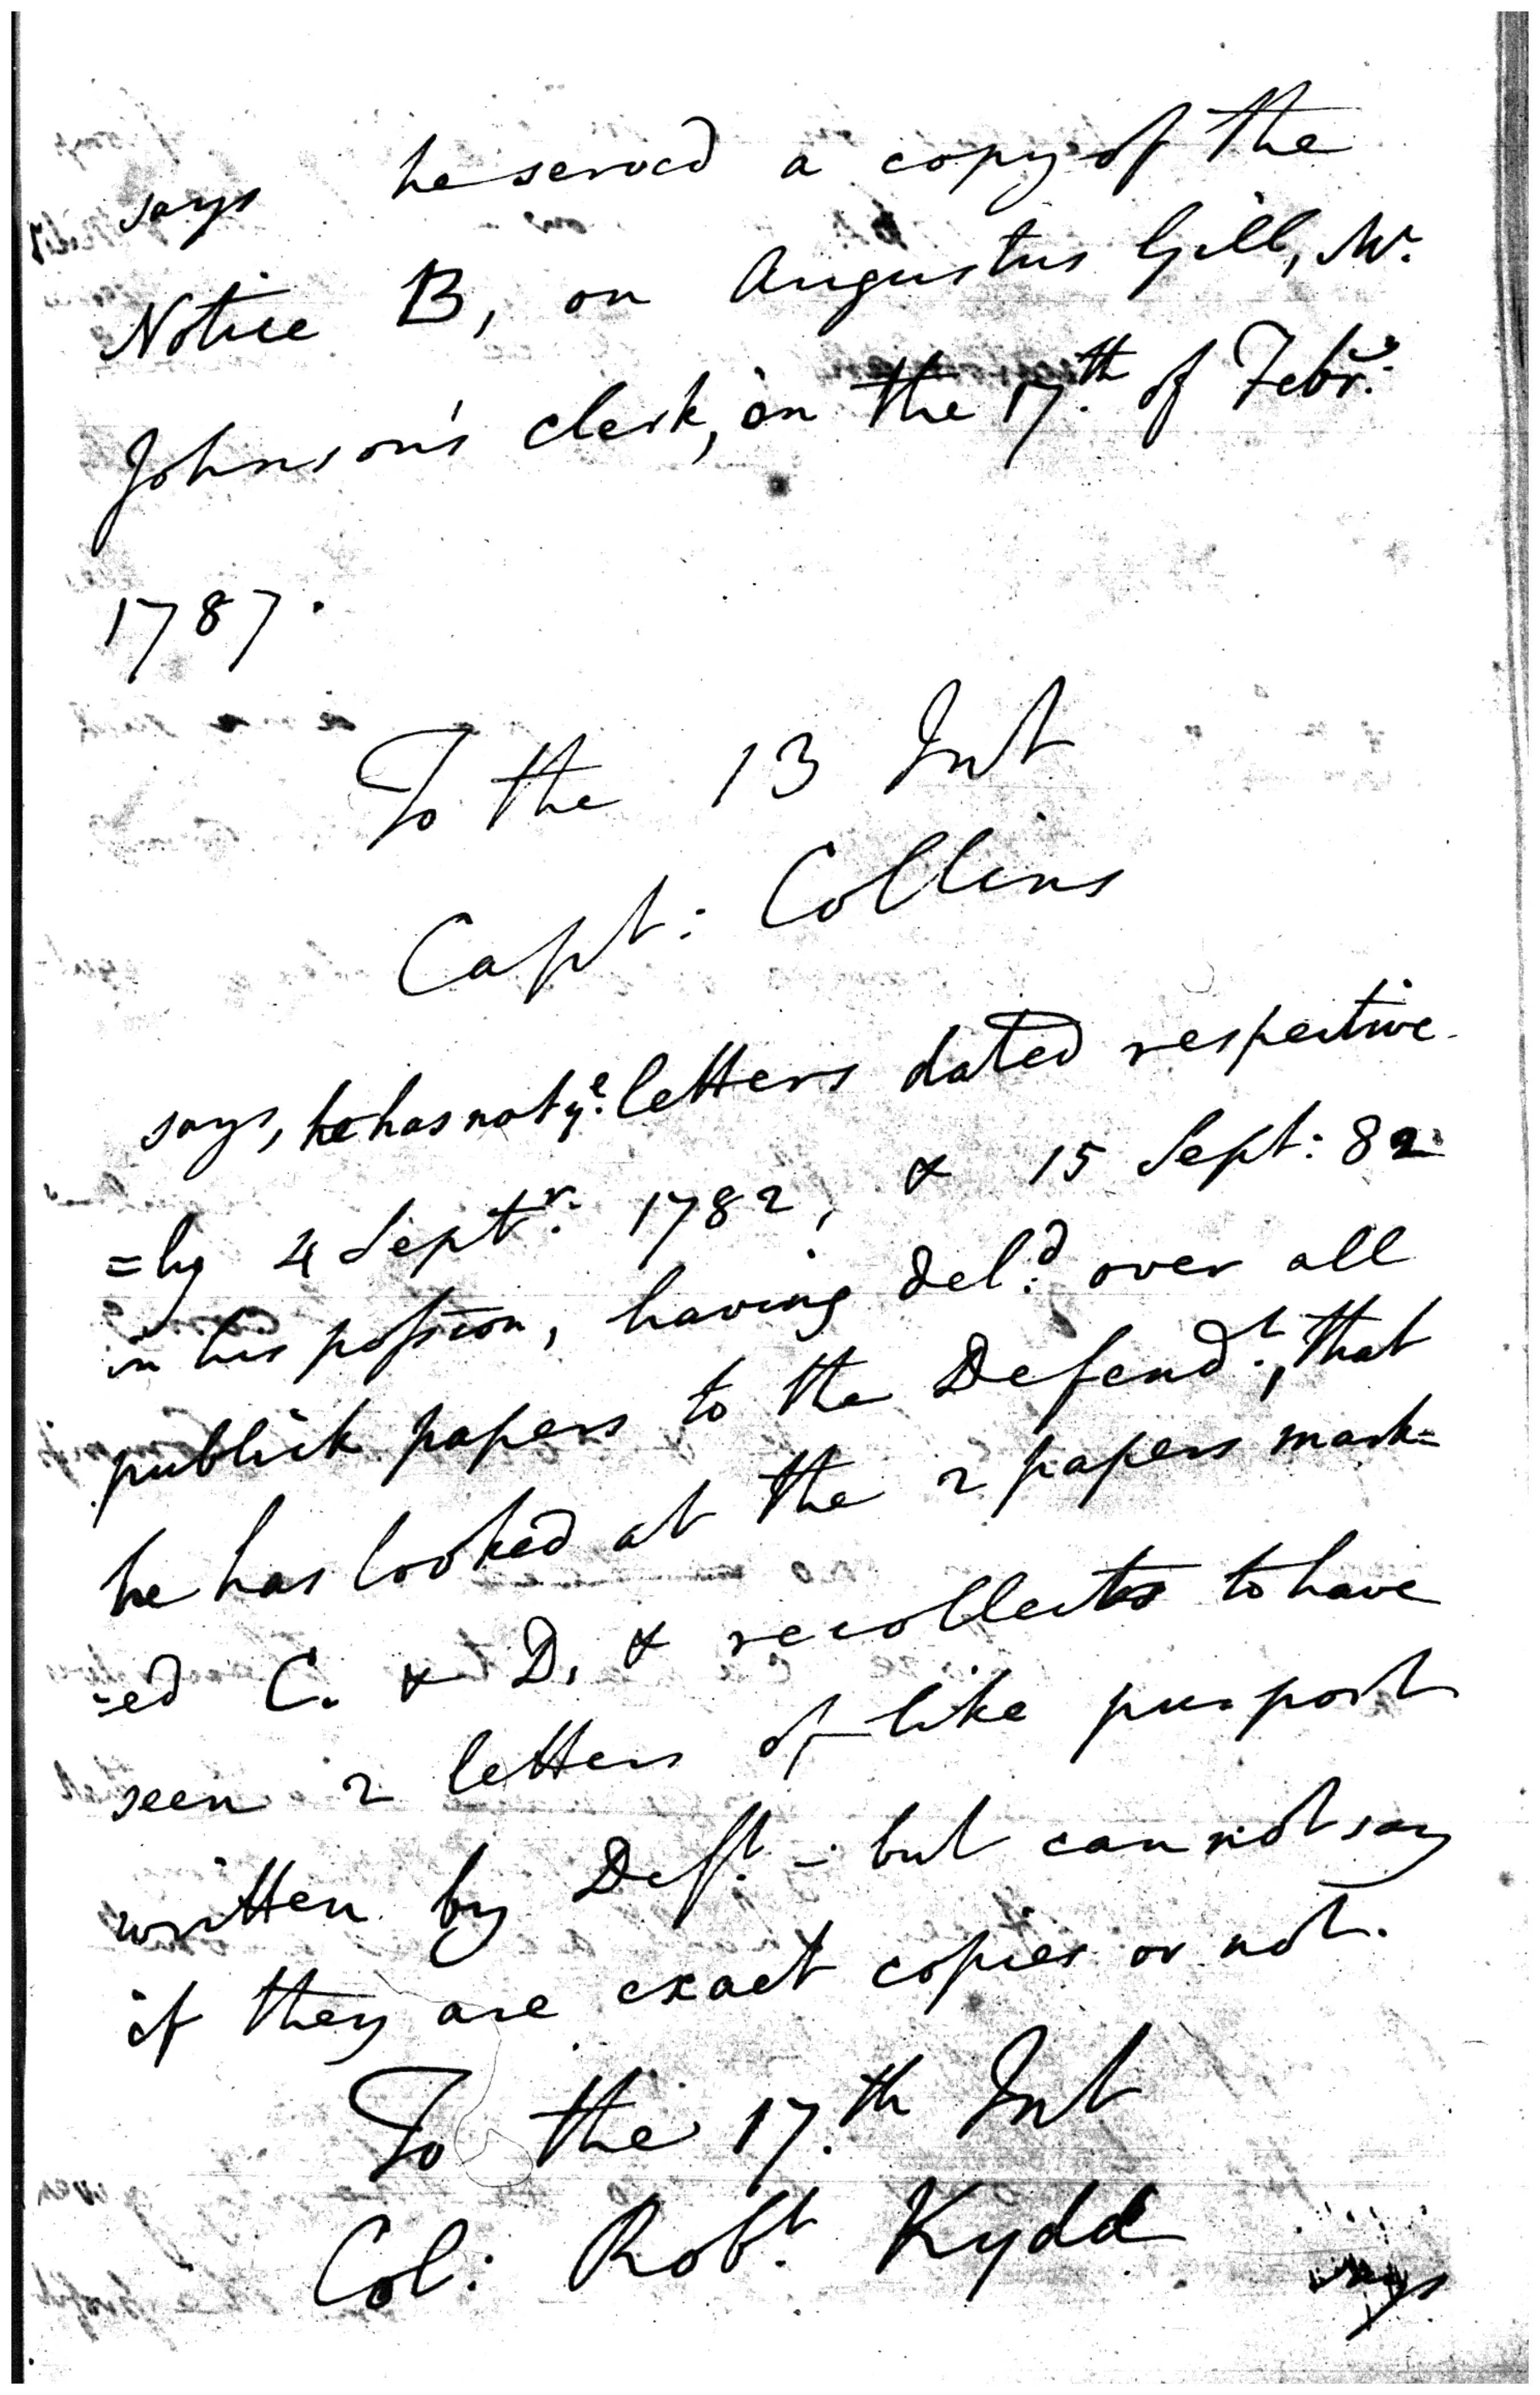 says he served a copy of the
Notice B, on Augustus Gill, Mr.
Johnson's clerk, on the 17th. of Febry.
1787.
To the 13 Int
Capt: Collins
says, he has not ye. letters dated respective-
=ly 4 Septr. 1782, & 15 Sept: 82
in his possion, having deld. over all
publick papers to the Defendt., that
he has looked at the 2 papers mark=
=ed C. & D. & recollects to have
seen 2 letters of like purport
written by Deft. - but can not say
if they are exact copies or not.
To the 17.th Int
Col: Robt. Kydd
says